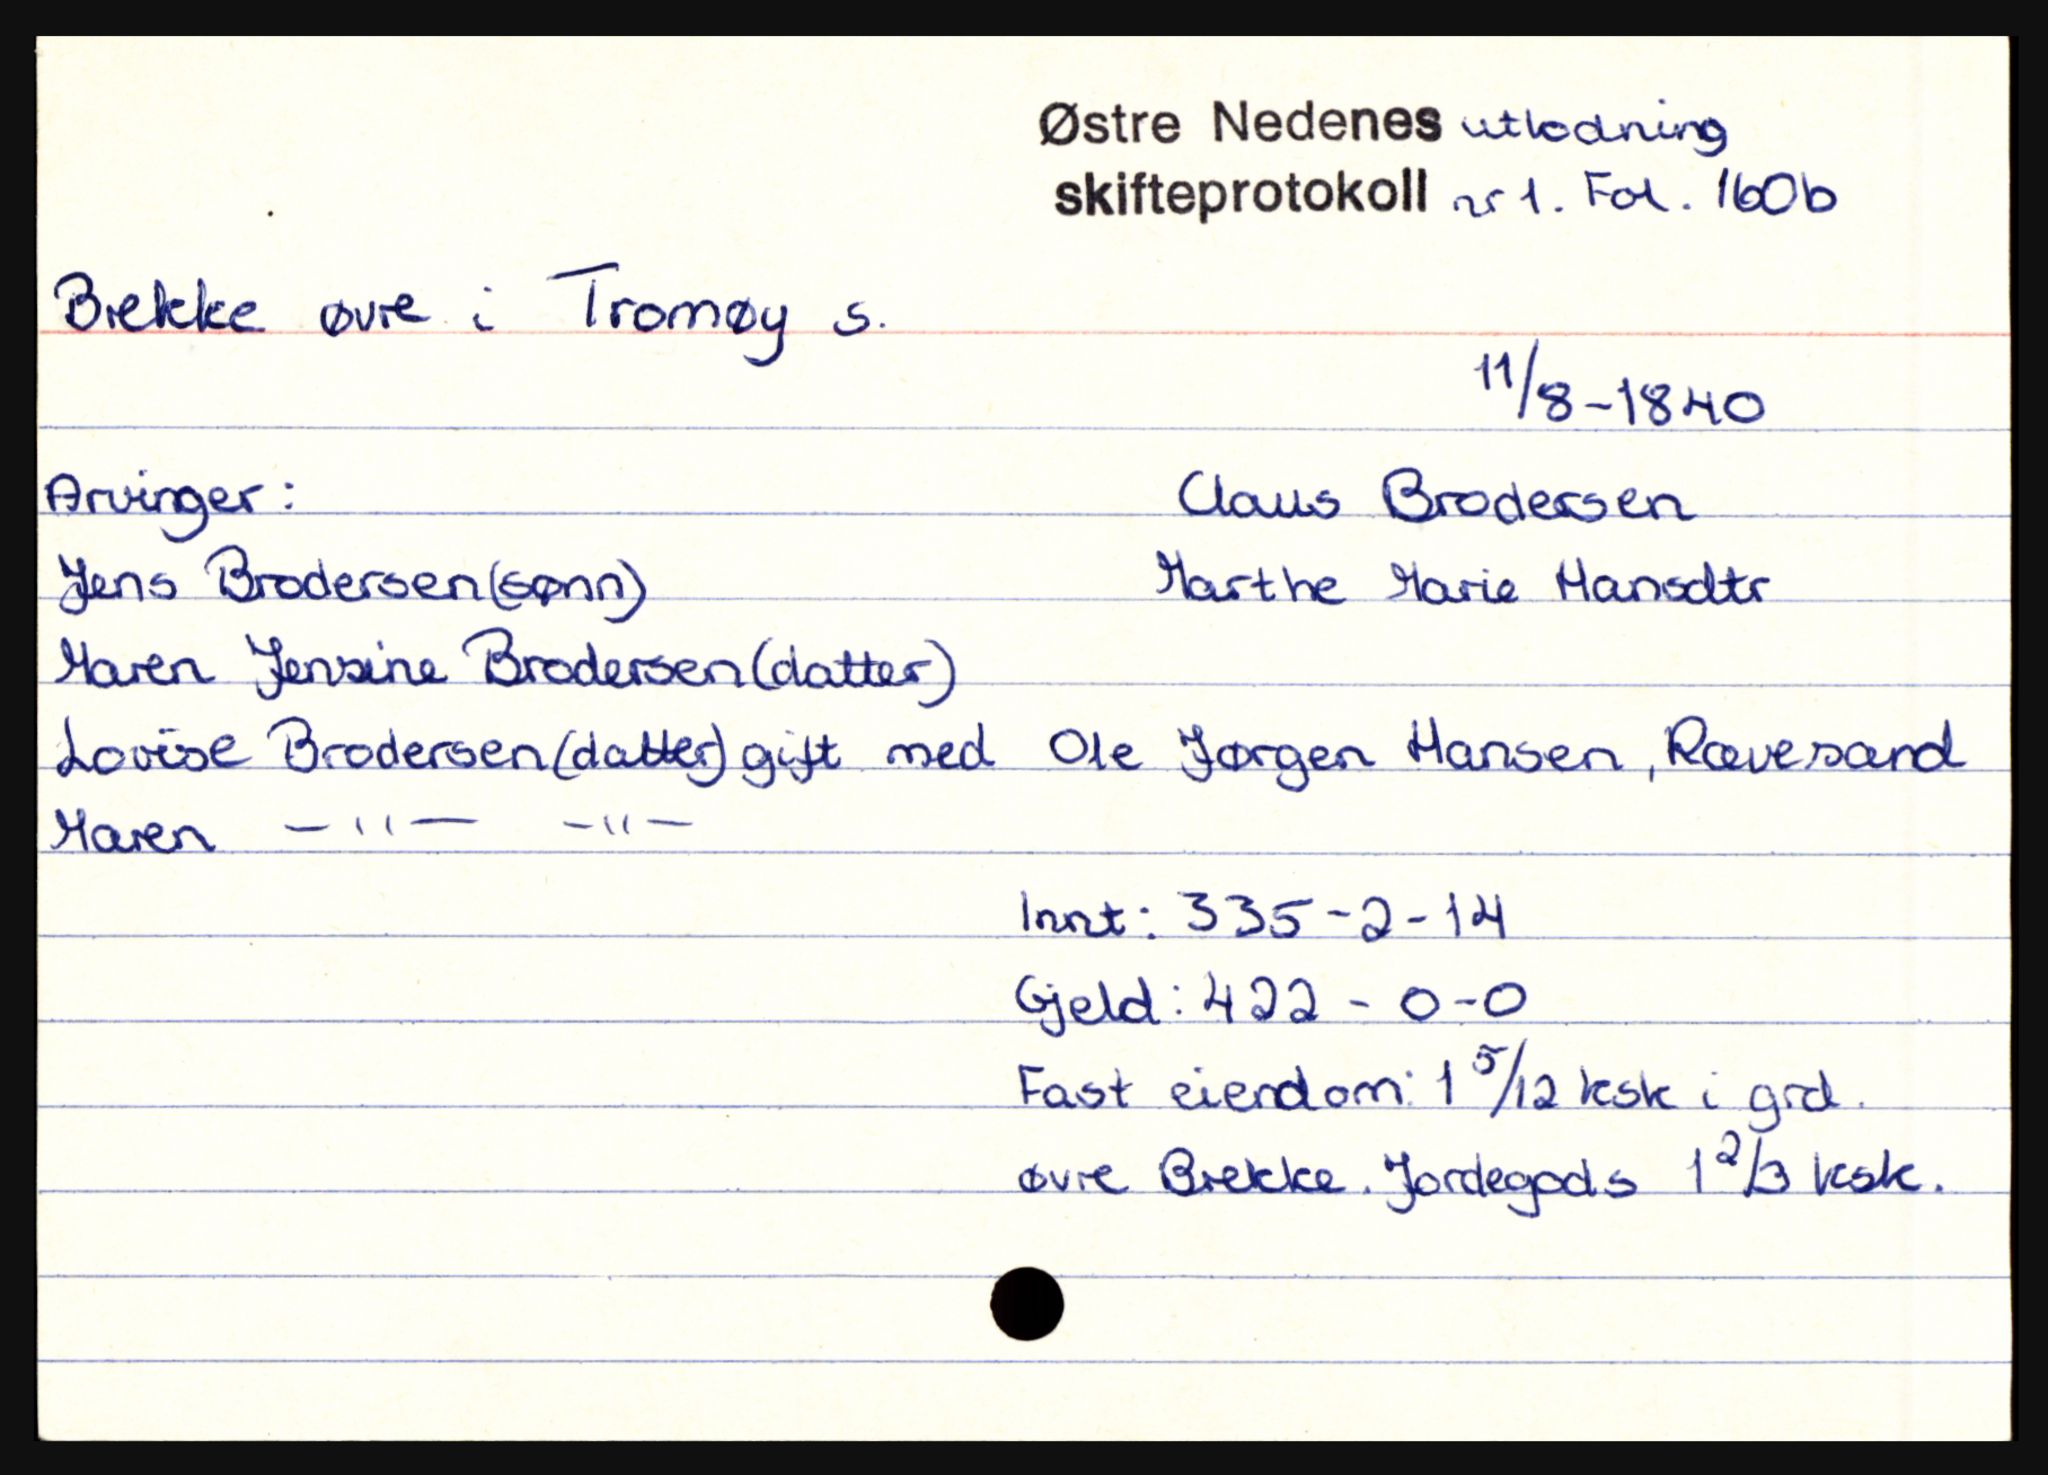 Østre Nedenes utlodning
skifteprotokoll nr 1. Fol. 160b
Brekke øvre i Tromøy s.
11/8-1840
Arvinger: Claus Brodersen
Jens Brodersen (sønn) Marthe Marie Hansdtr
Maren Jensine Brodersen (datter)
Lovise Brodersen (datter) gift med Ole Jørgen Hansen, Rævesand
Maren —"— —"—
Innt: 335-2-14
Gjeld: 422-0-0
Fast eiendom: 1 5/12 ksk i grd.
øvre Brekke. Jordegods 1 2/3 ksk.